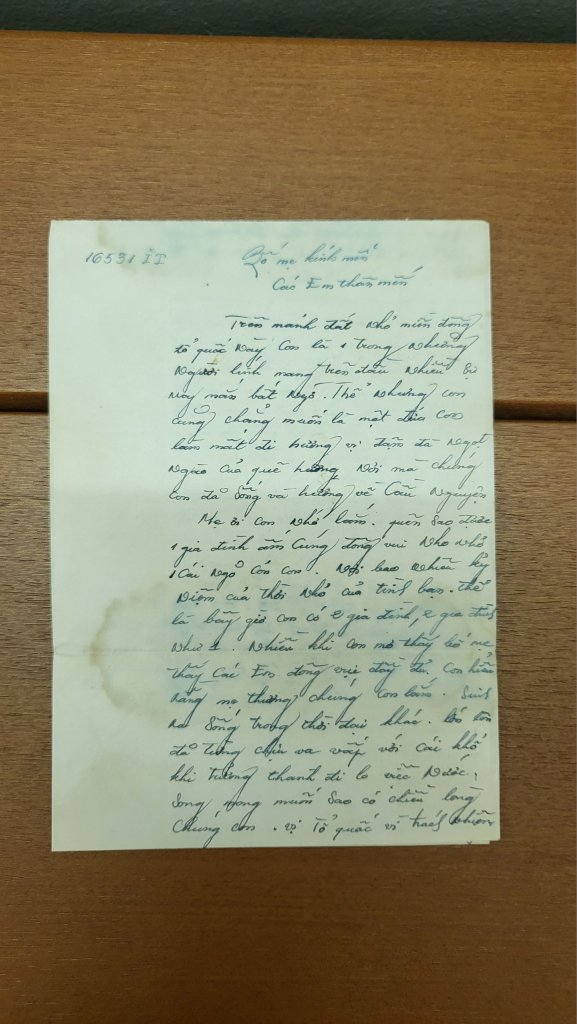 16531 IT
Bố mẹ kính mến
Các Em thân mến
Trên mảnh đất nhỏ miền đông
tổ quốc này con là 1 trong những
người lính mang trên đầu nhiều sự
may mắn bất ngờ. Thế nhưng con
cũng chẳng muốn là một đứa con
làm mất đi hương vị đậm đà ngọt
ngào của quê hương nơi mà chúng
con đã sống và hướng về cầu nguyện
Mẹ ơi con nhớ lắm. quên sao được
1 gia đình ấm cúng đông vui nho nhỏ
1 cái ngõ con con. Nơi bao nhiêu kỷ
niệm của thời nhỏ của tình bạn. thế
là bây giờ con có 2 gia đình, 2 gia đình
như 1. Nhiều khi con mơ thấy bố mẹ
thấy các Em đông vui đầy đủ. Con hiểu
rằng mẹ thương chúng con lắm. Sinh
ra sống trong thời đại khác. lớn lên
đã từng chịu va vấp với cái khổ
khi trưởng thành đi lo việc nước.
Song mong muốn sao có chiều lòng
chúng con. vì Tổ quốc vì trách nhiệm